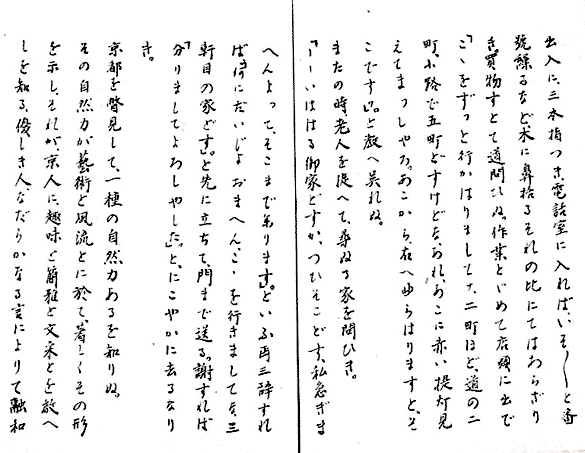 出入に、三本指つき、電話室に入れば、いそ〱と番
號繰るなど木に鼻括るそれの比にてはあらざり
き。買物すとて道問ひぬ。作業とゞめて店頭に出で
「こゝをずつと行かはりましてナ、二町ほど、道の二
町、小路で五町どすけどなあれ、あこに赤い提灯見
えてまつしやろ。あこから、右へゆらはりますと、そ
こです」。と教へ呉れぬ。
またの時老人を從へて、尋ぬる家を問ひき。
「――いははる御家どすか、つひそこどす、私急ぎま
へんよつて、そこまで參ります」。といふ。再三辭すれ
ば「何にだいじよおまへん、こゝを行きましてな、三
軒目の家どす」。と先に立ちて、門まで送る。謝すれば
「分りましてよろしやした」。と、にこやかに去るなり
き。
京都を瞥見して、一種の自然力あるを知りぬ。
その自然力が藝術と風流とに於て、著しくその形
を示し、それが京人に、趣味と簡雅と文采とを教へ
しを知る、優しき人なだらかなる言によりて融和